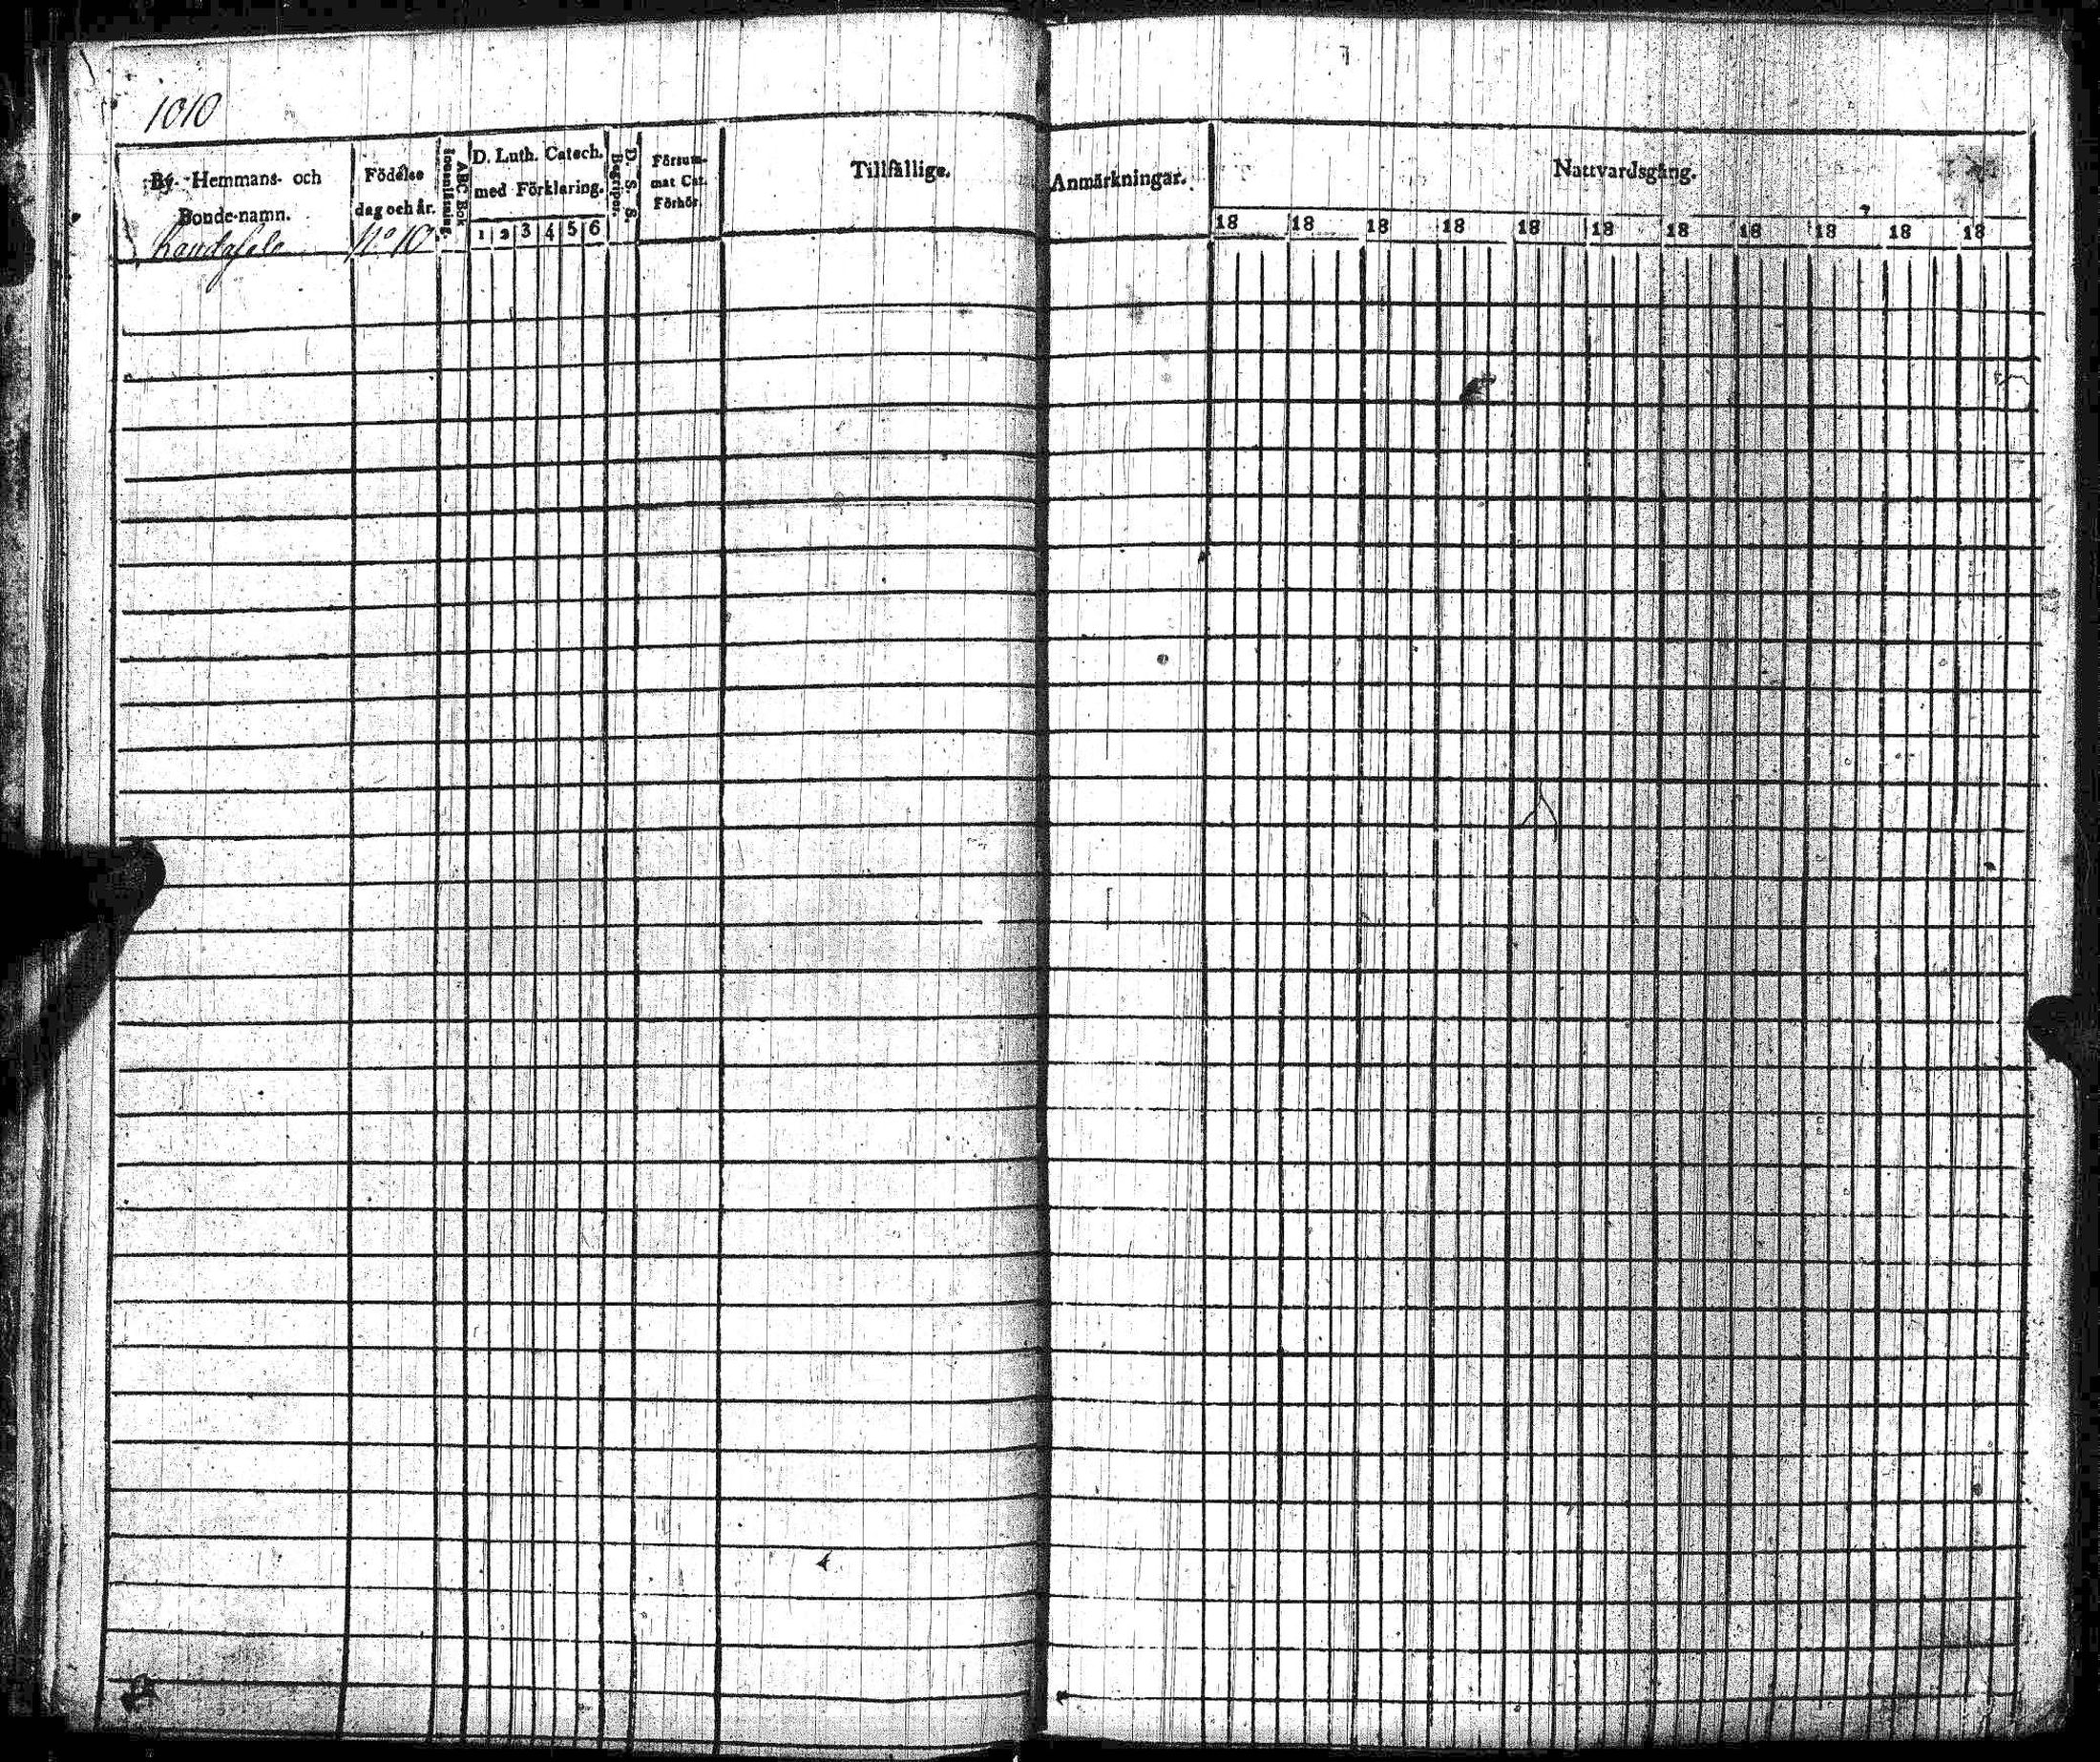 1010
By- Hemmans- och
Bonde-namn.
Födelse
dag och år.
ABC Bok
Innanläsning.
D. Luth. Catech.
med Förklaring.
1 2 3 4 5 6
D. S. S.
Begriper.
Försum-
mat Cat.
Förhör.
Tillfällige.
Anmärkningar.
Nattvardsgång.
18 18 18 18 18 18 18 18 18 18 18
No 10